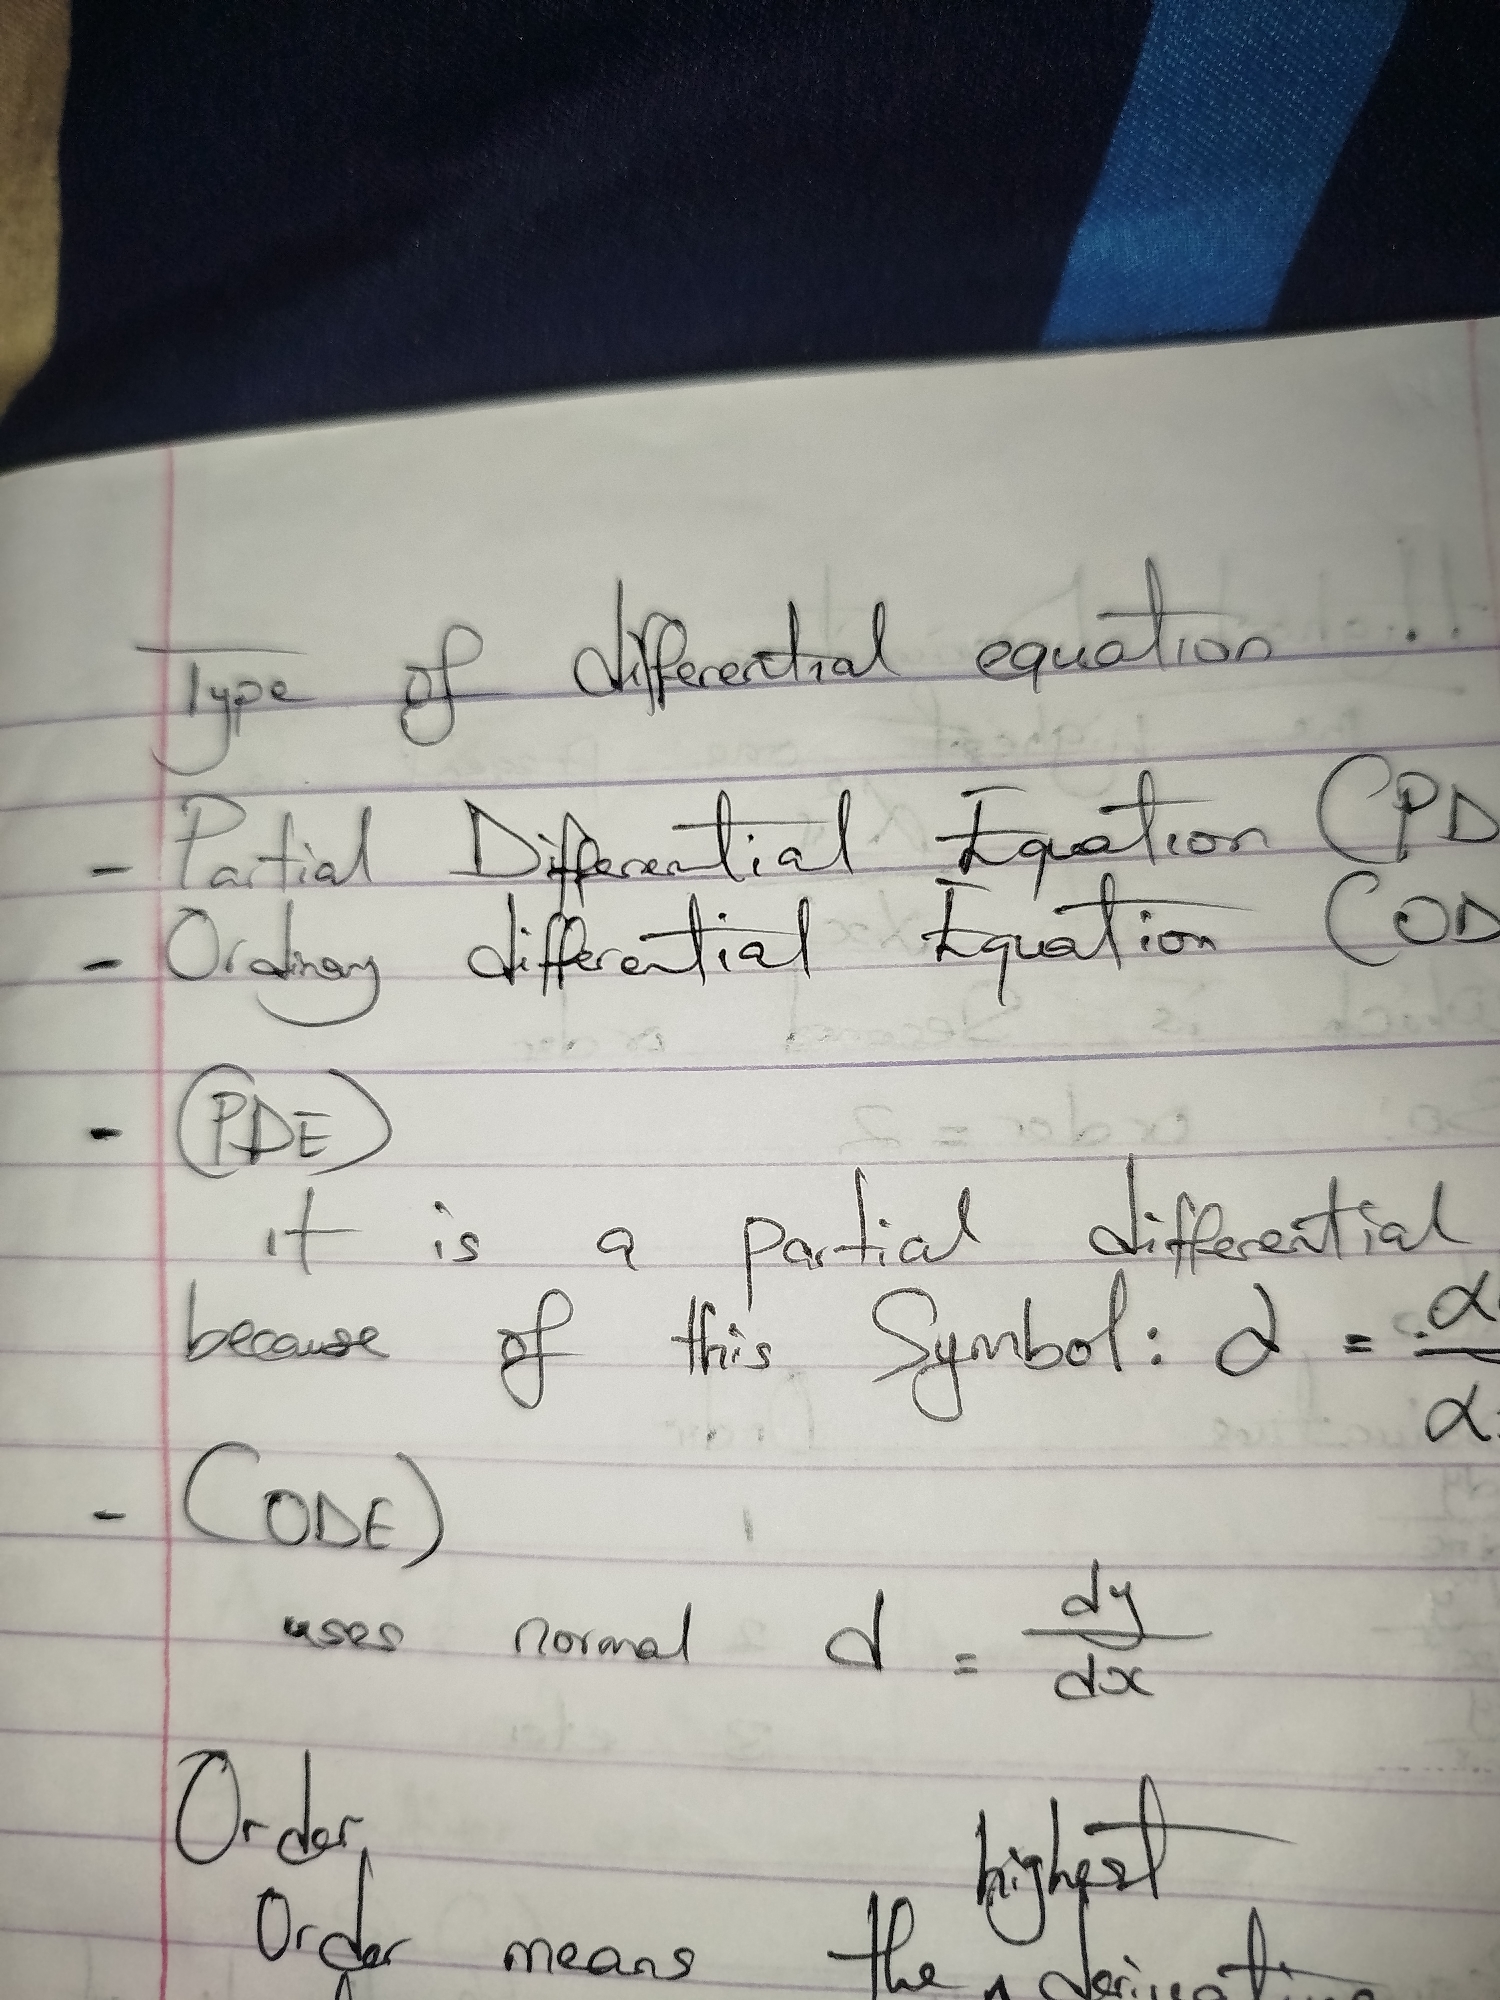 Type of differential equation
- Partial Differential Equation (PD
- Ordinary differential Equation (OD
- (PDE)
it is a partial differential
because of this Symbol: ∂ = α
α
- (ODE)
uses normal d = dy
dx
Order
highest
Order means the ^ derivative